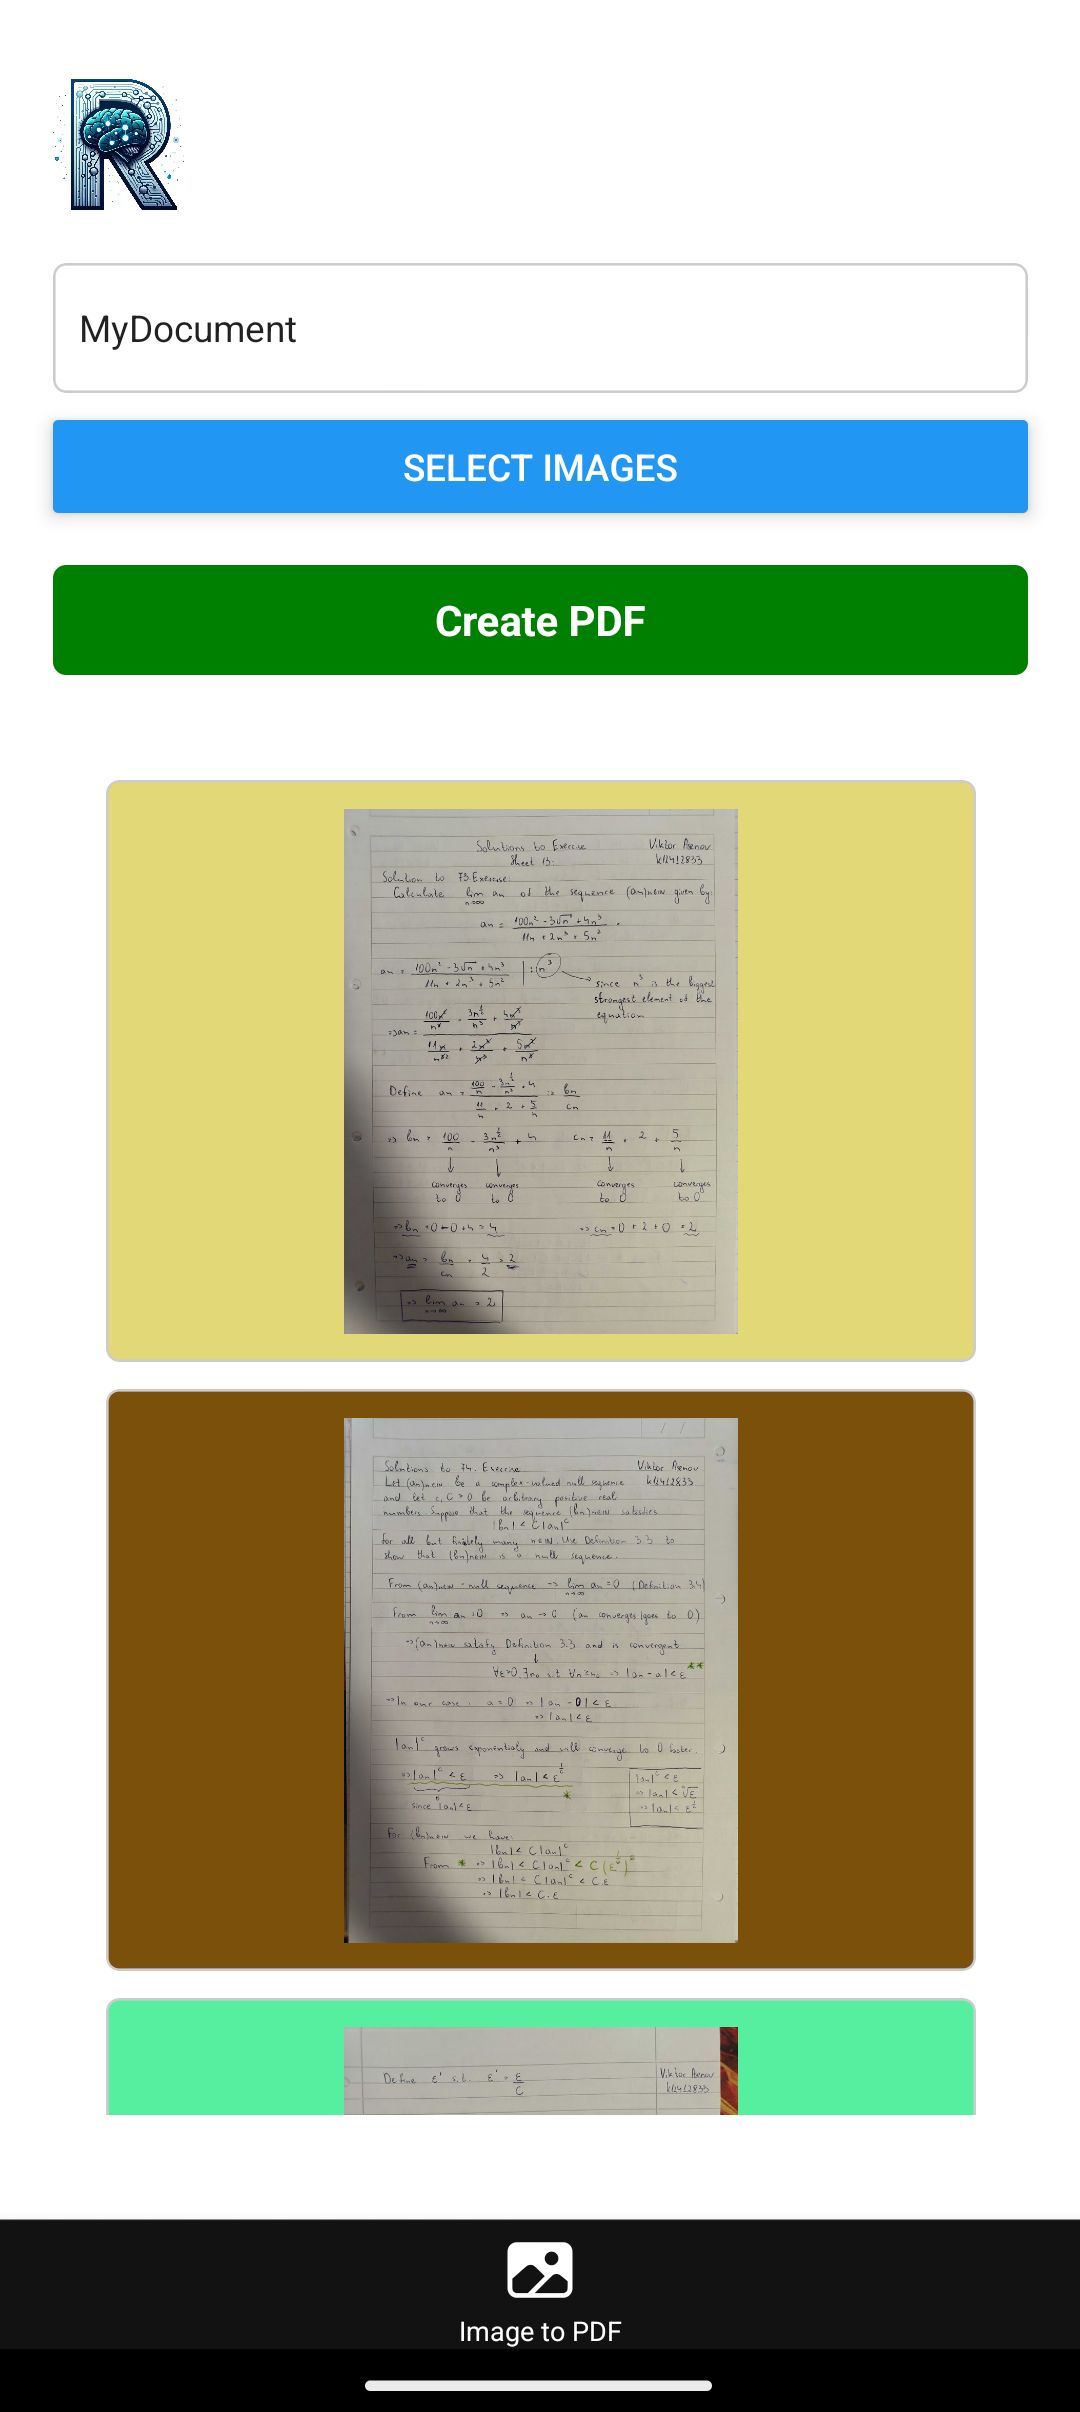 MyDocument
SELECT IMAGES
Create PDF
Solutions to Exercise
Sheet 13.
Viktor Asenov
k12412833
Solution to 73.Exercise:
Calculate lim an of the sequence (an)n∈N given by:
n→∞
an = 100n² - 3√n + 4n³
11n + 2n³ + 5n²
an = 100n² - 3√n + 4n³ | : n³
11n + 2n³ + 5n²
since n³ is the biggest
strongest element of the
equation
Define an = = bn
cn
=> bn = 100/n - + 4 cn = 11/n + 2 + 5/n
converges converges converges converges
to 0 to 0 to 0 to 0
=> bn = 0 - 0 + 4 = 4 => cn = 0 + 2 + 0 = 2
=> an = bn/cn = 4/2 = 2
=> lim an = 2
n→∞
Solutions to 74. Exercise
Viktor Asenov
k12412833
Let (an)n∈N be a complex-valued null sequence
and let c, C > 0 be arbitrary positive real
numbers Suppose that the sequence (bn)n∈N satisfies
|bn| < C|an|ᶜ
for all but finitely many n∈N. Use Definition 3.3 to
show that (bn)n∈N is a null sequence.
From (an)n∈N - null sequence => lim an = 0 (Definition 3.4)
n→∞
From lim an = 0 => an → 0 (an converges/goes to 0)
n→∞
=> (an)n∈N satisfy Definition 3.3 and is convergent
∀ε>0 ∃n₀ s.t ∀n≥n₀ => |an - a| < ε **
=> In our case: a = 0 => |an - 0| < ε
=> |an| < ε
|an|ᶜ grows exponentialy and will converge to 0 faster.
=> |an|ᶜ < ε => |an| < ε^(1/c) *
since |an| < ε
|an|ᶜ < ε
=> |an| < ᶜ√ε
=> |an| < ε^(1/c)
For (bn)n∈N we have:
|bn| < C|an|ᶜ
From * => |bn| < C|an|ᶜ < C(ε^(1/c))ᶜ
=> |bn| < C|an|ᶜ < C.ε
=> |bn| < C.ε
Define ε' s.t. ε' = ε/C
Viktor Asenov
k12412833
Image to PDF